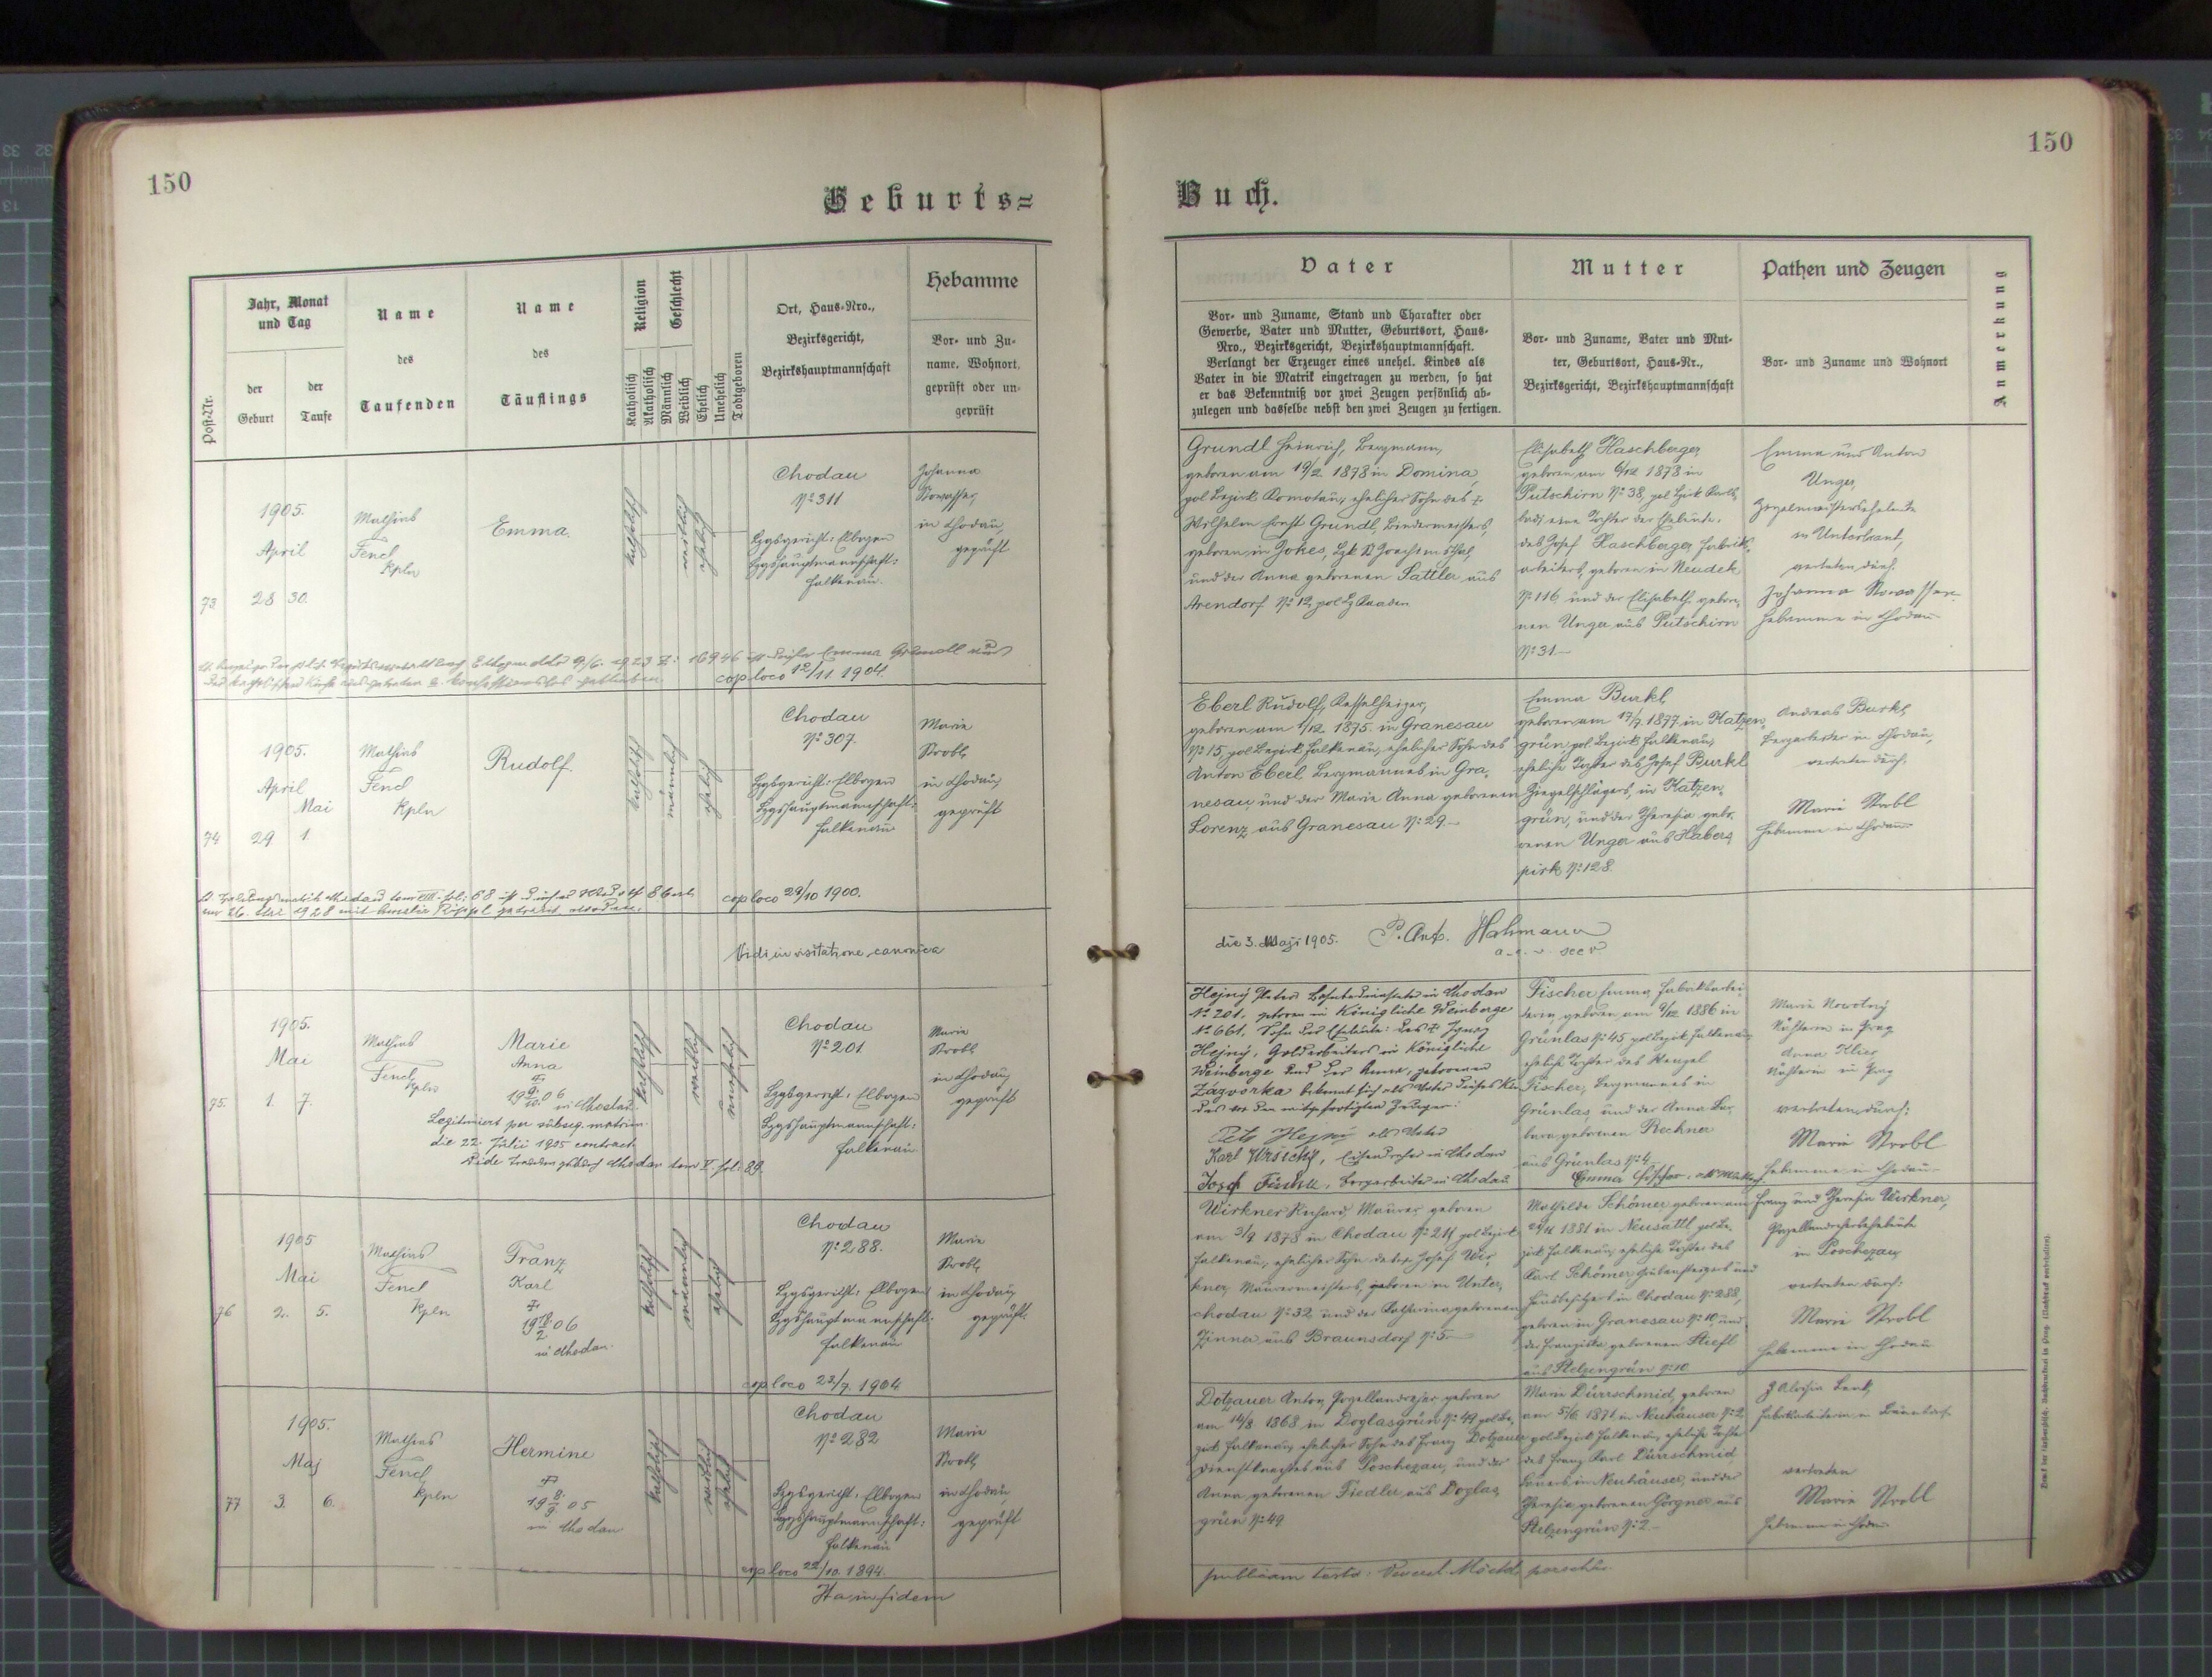 150
150
Geburts=
Buch.
Post-Nr.
Jahr, Monat
und Tag
der
Geburt
der
Taufe
Name
des
Taufenden
Name
des
Täuflings
Religion
Katholisch
Akatholisch
Geschlecht
Männlich
Weiblich
Ehelich
Unehelich
Todtgeboren
Ort, Haus-Nro.,
Bezirksgericht,
Bezirkshauptmannschaft
Hebamme
Vor- und Zu-
name, Wohnort,
geprüft oder un-
geprüft
Vater
Vor- und Zuname, Stand und Charakter oder
Gewerbe, Vater und Mutter, Geburtsort, Haus-
Nro., Bezirksgericht, Bezirkshauptmannschaft.
Verlangt der Erzeuger eines unehel. Kindes als
Vater in die Matrik eingetragen zu werden, so hat
er das Bekenntniß vor zwei Zeugen persönlich ab-
zulegen und dasselbe nebst den zwei Zeugen zu fertigen.
Mutter
Vor- und Zuname, Vater und Mut-
ter, Geburtsort, Haus-Nr.,
Bezirksgericht, Bezirkshauptmannschaft
Pathen und Zeugen
Vor- und Zuname und Wohnort
Anmerkung
73
1905.
April
28 30.
Mathias
Fencl
Kpln
Emma.
katholisch
weiblich
ehelich
Chodau
No 311
Bzgsgericht: Elbogen
Bzgshauptmannschaft:
Falkenau.
cop loco 12/11 1904.
Johanna
Nowasser,
in Chodau,
geprüft
Grundl Heinrich, Bergmann,
geboren am 19/2 1878 in Domina,
pol Bezirk Komotau, ehelicher Sohn des
Wilhelm Ernst Grundl, Bindermeisters,
geboren in Jokes, Joachimsthal,
und der Anna geborenen Sattler aus
Arendorf No 12 pol Bz Kaaden
Elisabeth Haschberger
geboren am 6/12 1878 in
Putschirn No 38, pol Bzirk Karls-
bad, eine Tochter der Eheleute:
des Josef Haschberger Fabriks-
arbeiters, geboren in Neudek
No 116 und der Elisabeth gebore-
nen Unger aus Putschirn
No 31.-
Emma und Anton
Unger,
in Unterkant,
vertreten durch:
Johanna Nowasser
Hebamme in Chodau
74
1905.
April
Mai
29 1.
Mathias
Fencl
Kpln
Rudolf.
katholisch
männlich
ehelich
Chodau
No 307.
Bzgsgericht: Elbogen
Bzgshauptmannschaft:
Falkenau
cop loco 29/10 1900.
Marie
Strobl,
in Chodau,
geprüft
Eberl Rudolf, Kesselheizer,
geboren am 1/12 1875. in Granesau
No 15 pol Bezirk Falkenau, ehelicher Sohn des
Anton Eberl, Bergmannes in Gra-
nesau, und der Marie Anna geborenen
Lorenz aus Granesau No 29.-
Emma Burkl,
geboren am 17/7 1877 in Katzen-
grün, pol. Bezirk Falkenau,
eheliche Tochter des Josef Burkl
Ziegelschlägers, in Katzen-
grün, und der Theresia gebo-
renen Unger aus Habers-
pirk No 128.
Andreas Burkl,
Bergarbeiter in Chodau,
vertreten durch:
Marie Strobl
Hebamme in Chodau
Vidi in visitatione canonica
die 3. Maji 1905. P. Ant. Hahmann
75.
1905.
Mai
1. 7.
Mathias
Fencl
Kpln
Marie
Anna
in Chodau.
Legitimiert per subseq. matrim.
die 22. Julii 1905 contract.
Vide Chodau tom V fol: 89.
katholisch
weiblich
unehelich
Chodau
No 201.
Bzgsgericht: Elbogen
Bzgshauptmannschaft:
Falkenau
Marie
Strobl
in Chodau,
geprüft
Hejný Peter in Chodau
No 201. geboren in Königliche Weinberge
No 661. Sohn der Eheleute: des Ignaz
Hejný, Goldarbeiters in Königliche
Weinberge und der Anna, geborenen
Zázvorka bekennt sich als Vater dieses Kin-
des vor den mitgefertigten Zeugen:
Petr Hejný als Vater
Karl Wrsichy, Eisendreher in Chodau
Josef Fischer, Bergarbeiter in Chodau
Fischer Emma, Fabriksarbei-
terin, geboren am 9/12 1886 in
Grünlas No 45 pol Bezirk Falkenau,
eheliche Tochter des Wenzel
Fischer, Bergmannes in
Grünlas, und der Anna Bar-
bara geborenen Rechner
aus Grünlas No 4.-
Emma Fischer, als Mutter.
Marie Nowotný
Nähterin in Prag
Anna Klier
Nähterin in Prag
vertreten durch:
Marie Strobl
Hebamme in Chodau
76
1905
Mai
2. 5.
Mathias
Fencl
Kpln
Franz
Karl
in Chodau.
katholisch
männlich
ehelich
Chodau
No 288.
Bzgsgericht: Elbogen
Bzgshauptmannschaft:
Falkenau
cop loco 23/7. 1904
Marie
Strobl,
in Chodau,
geprüft.
Wirkner Richard, Maurer, geboren
am 3/9 1878 in Chodau No 211 pol Bezirk
Falkenau, ehelicher Sohn des Josef Wir-
kner, Maurermeisters, geboren in Unter-
chodau No 32 und der Katharina geborenen
Zinner aus Braunsdorf No 5.-
Mathilde Schömer geboren am
1881 in Neusattl, pol Be-
zirk Falkenau, eheliche Tochter des
Karl Schömer Grubensteigers und
Hausbesitzers in Chodau No 288,
geboren in Granesau No 10 und
der Franziska geborenen Stiefl
aus Stelzengrün No 10.
Franz und Theresia Wirkner,
Porzellandrehersheleute
in Poschezau,
vertreten durch:
Marie Strobl
Hebamme in Chodau
77
1905.
Maj
3. 6.
Mathias
Fencl,
Kpln
Hermine
in Chodau
katholisch
weiblich
ehelich
Chodau
No 282
Bzgsgericht: Elbogen
Bzgshauptmannschaft:
Falkenau
cop loco 22/10. 1894.
Marie
Strobl,
in Chodau,
geprüft
Dotzauer Anton, Porzellandreher geboren
am 14/8 1868 in Doglasgrün No 49 pol Be-
zirk Falkenau, ehelicher Sohn des Franz Dotzauer
Dienstknechtes aus Poschezau, und der
Anna geborenen Fiedler aus Doglas-
grün No 49.
Marie Dürrschmid, geboren
am 5/6 1871 in Neuhäuser No 2,
pol Bezirk Falkenau, eheliche Tochter
des Franz Karl Dürrschmid
Bauers in Neuhäuser, und der
Theresia geborenen Görgner aus
Stelzengrün No 2.-
Aloisia Lenk,
Fabriksarbeiterin in
vertreten
Marie Strobl
Hebamme in Chodau
Ita in fidem
publicam testor: